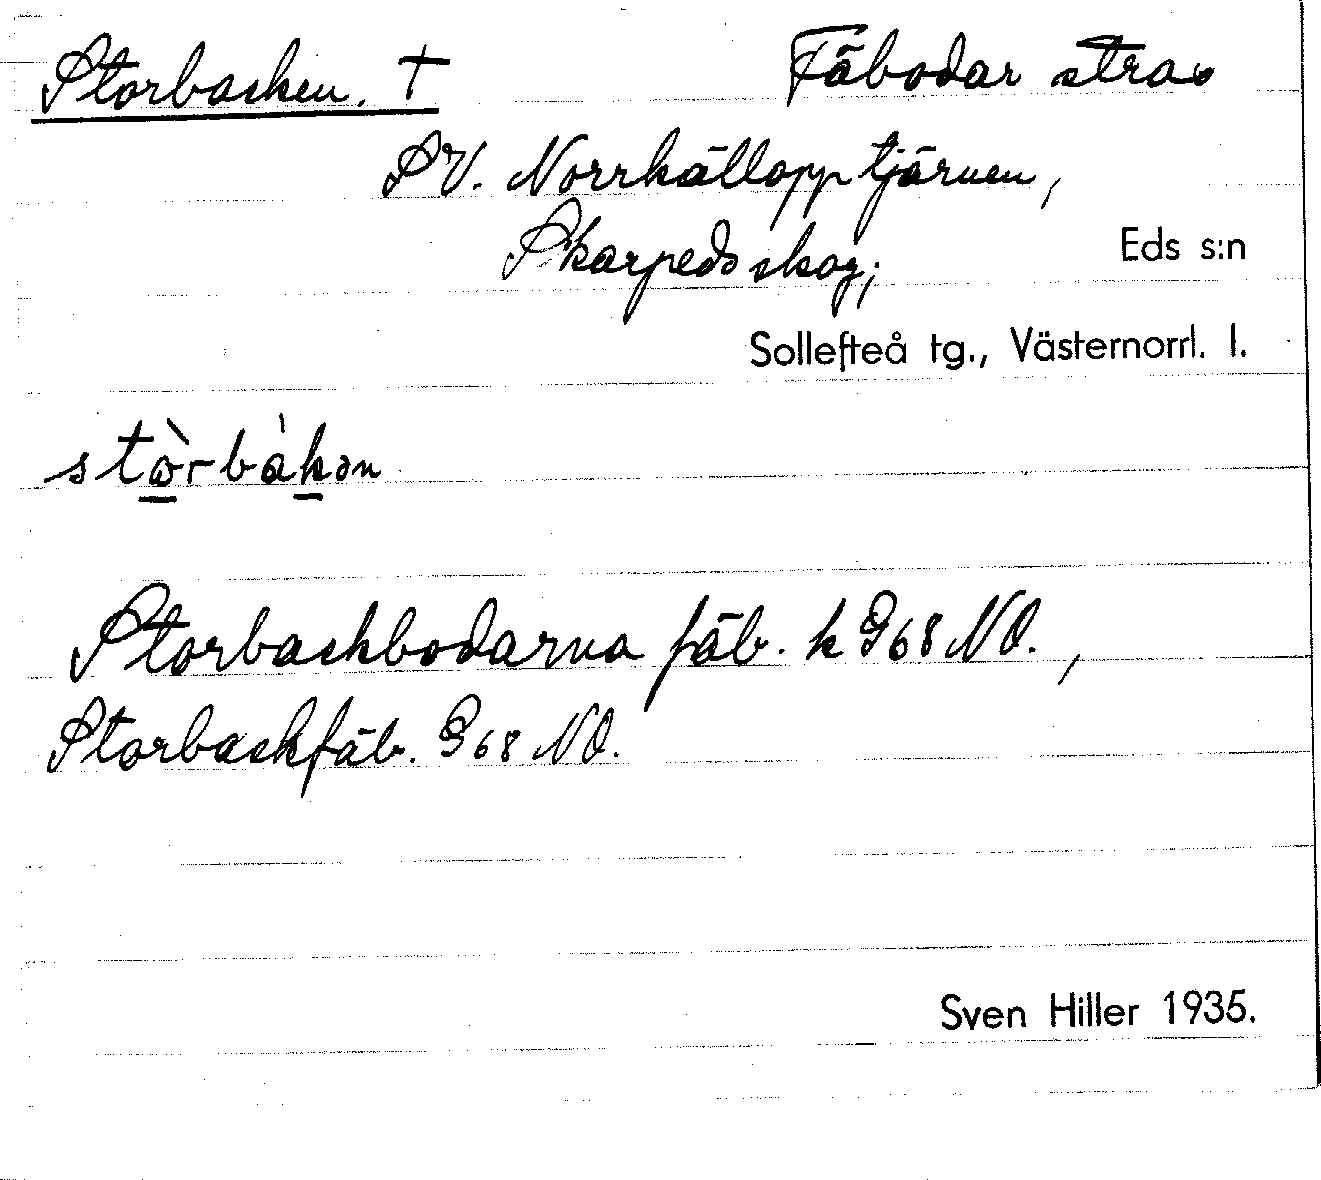 Storbacken. †
Fäbodar strax
SV. Norrkällopptjärnen,
Skarpeds skog;
Eds s:n
Sollefteå tg., Västernorrl. l.
stòrbàkən
Storbackbodarna fäb. k G68 NO.,
Storbackfäb. G68 NO.
Sven Hiller 1935.